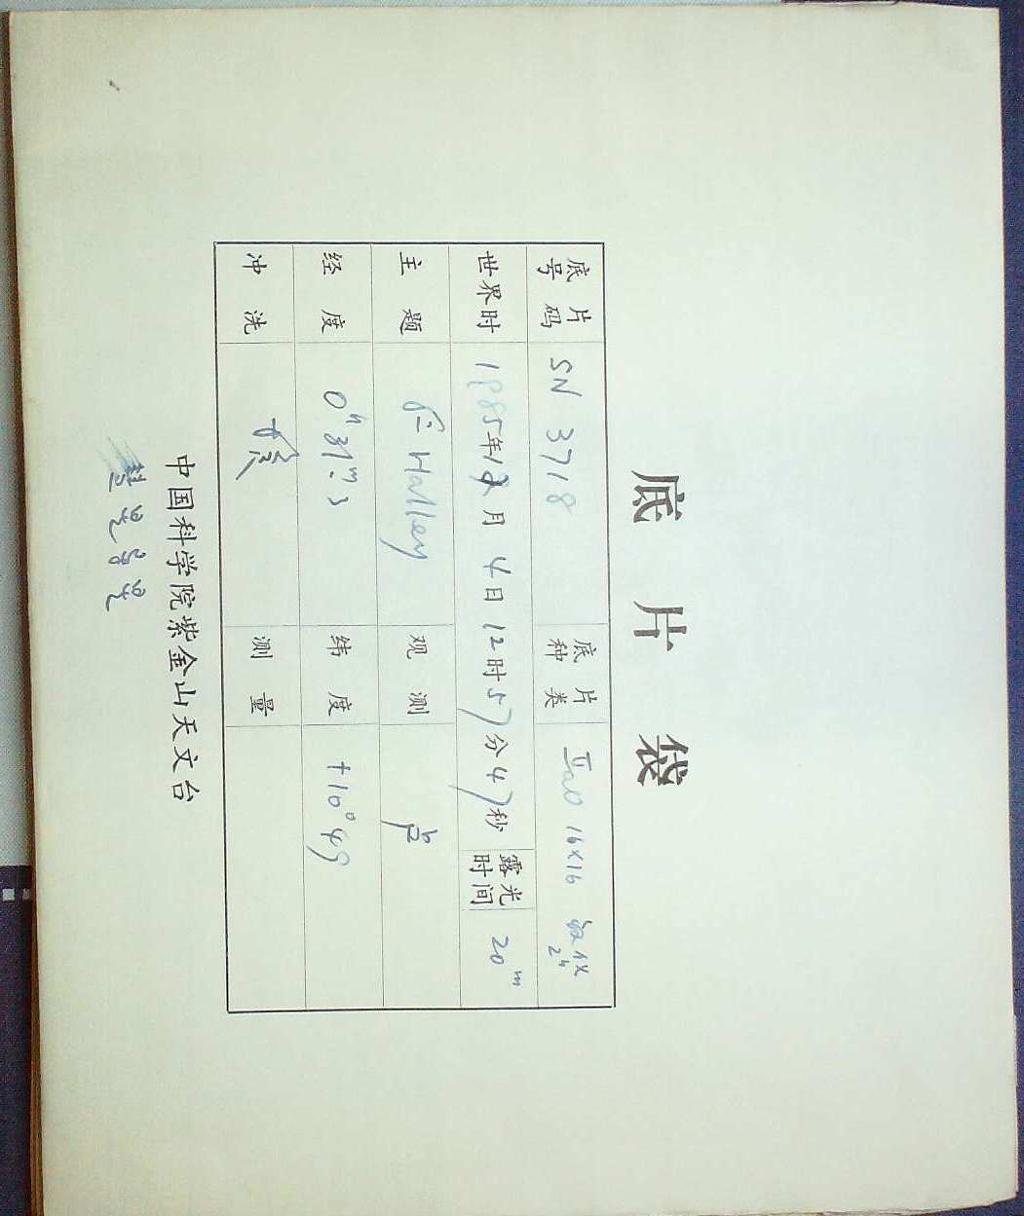 底片袋
底片号码 SN 3718 底片种类 IIaO 16×16
世界时 1985年12月4日12时57分47秒 露光时间 20m
主题 P/Halley 观测 卢
经度 0h 31m.3 纬度 +10°49
冲洗 测量
中国科学院紫金山天文台
彗星